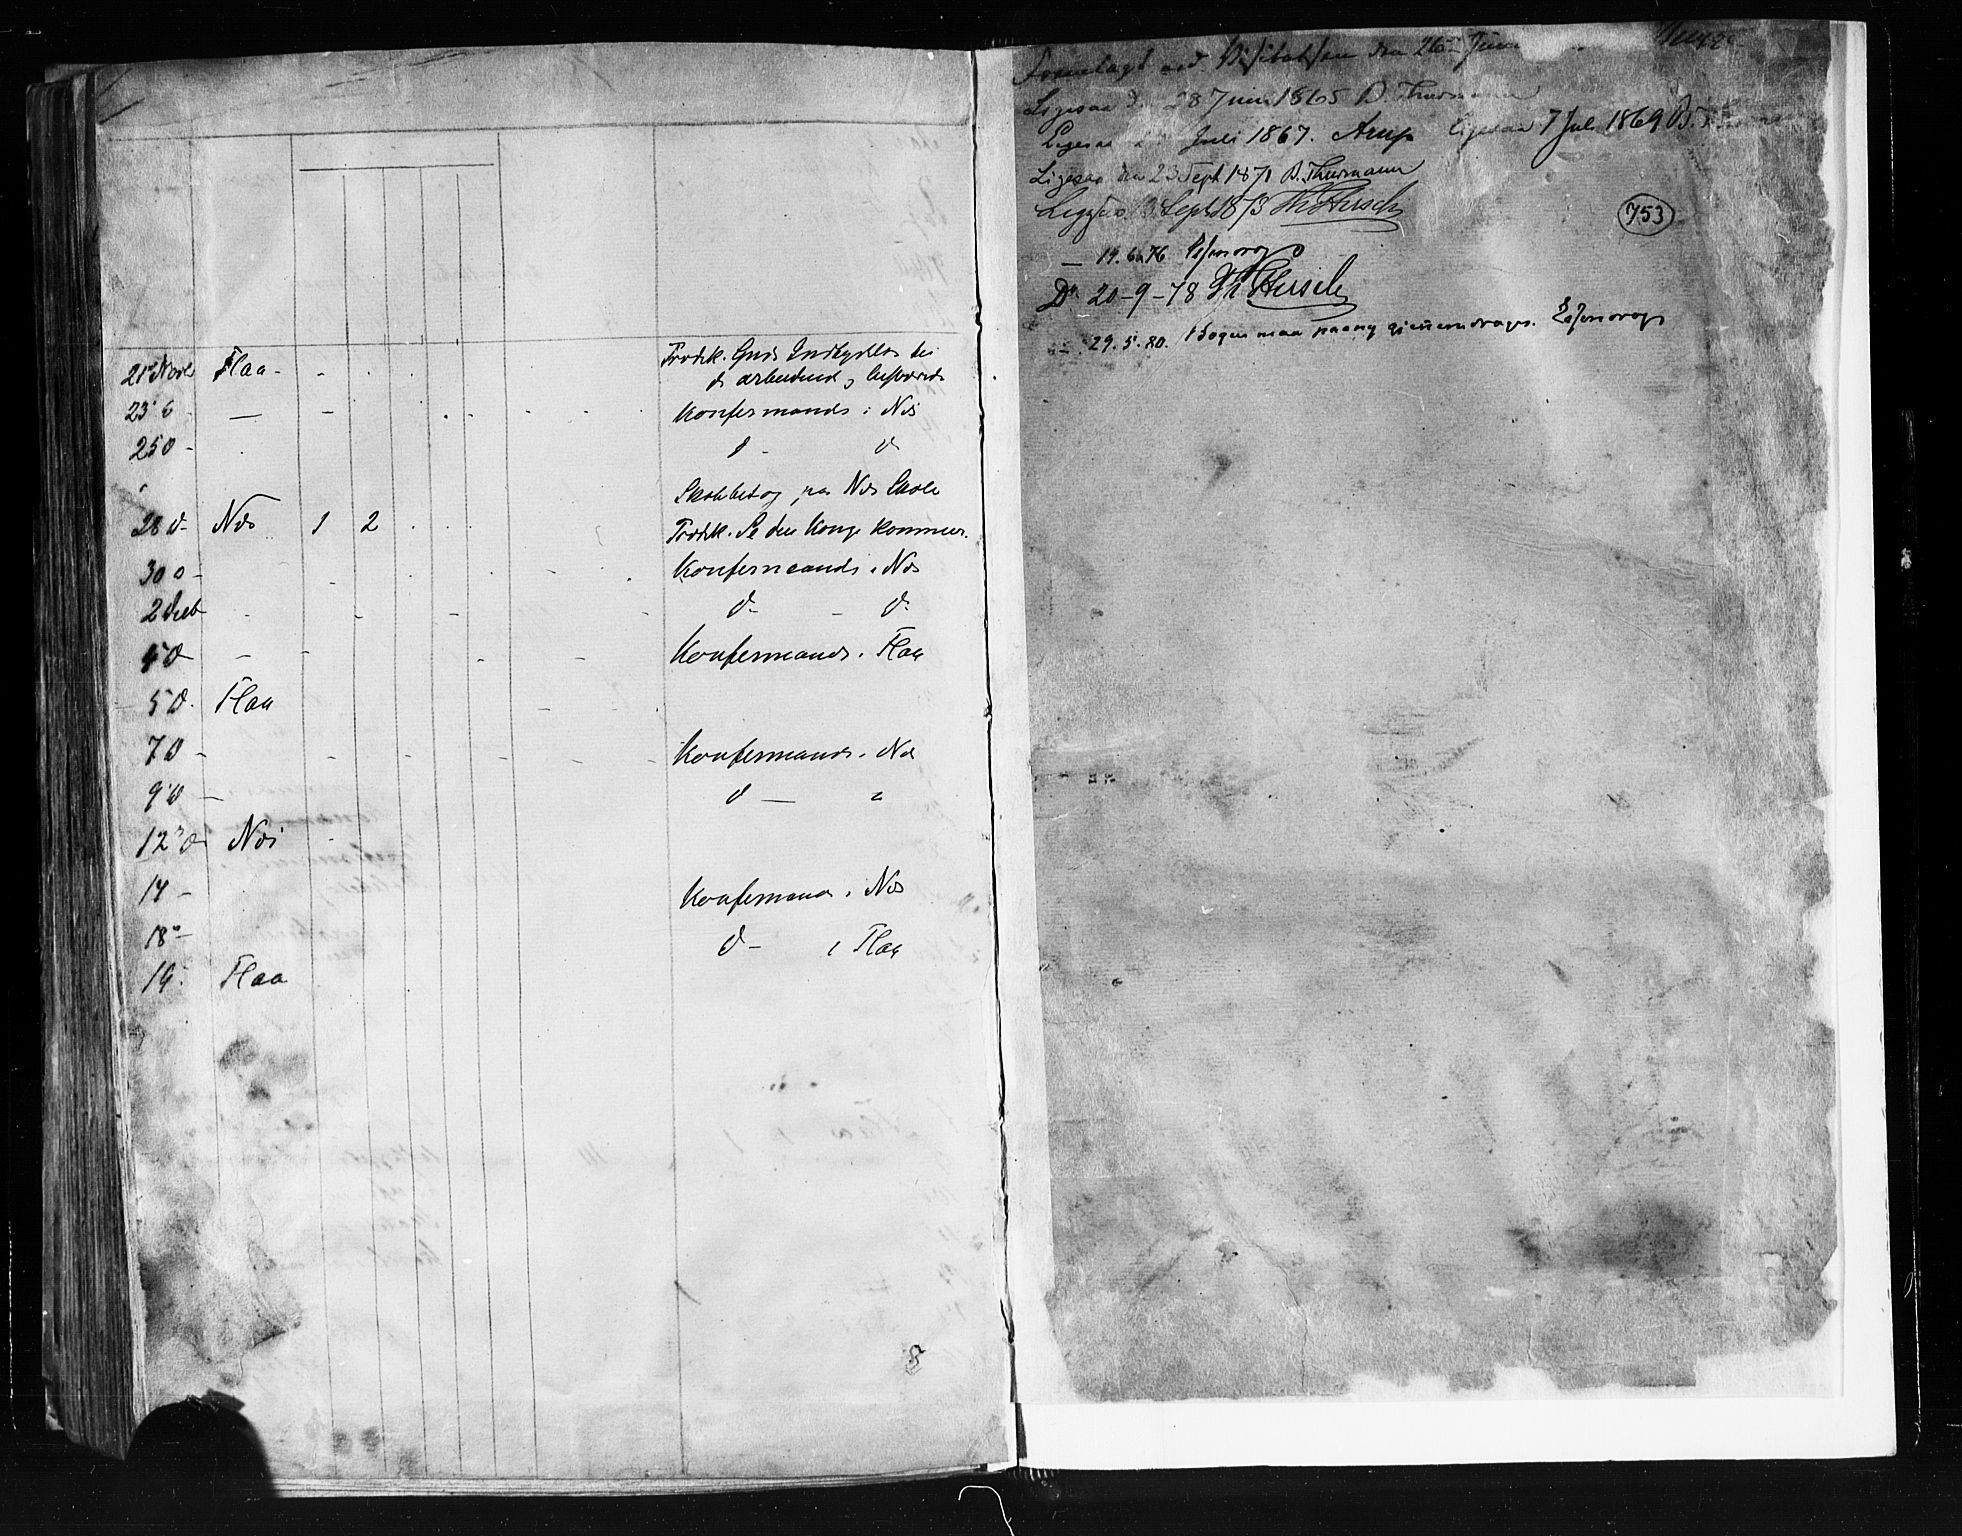 21 Novb Flaa - Prædik. Guds Indbydelse til
de arbeidende og besværede
23 d - Konfirmands i Næs
25 d - d - d
Skolebesøg paa Næs Skole
28 d - Næs 1 2 Prædik. Se din Konge kommer.
30 d - Konfirmands i Næs
2 Decb d - - d -
4 d - Konfirmands. Flaa
5 d. Flaa
7 d - Konfirmands. Næs
9 d - d -
12 d Næs
14 - Konfirmands. Næs
18 - d - i Flaa
19. Flaa
8
Fremlagt ved Visitatsen den 26 Juni
Ligesaa d. 28 Juni 1865 B. Thurmann
Ligesaa Juli 1867. Arup Ligesaa 7 Juli 1869 B.
Ligesaa den 23 Sept 1871 B. Thurmann
Ligesaa Sept 1873 Th Hirsch
753
— 19. 6. 76 Essendrop
Do. 20-9-78 Th Hirsch
— 29. 5. 80. Bogen maa paany gjennemdrages. Essendrop